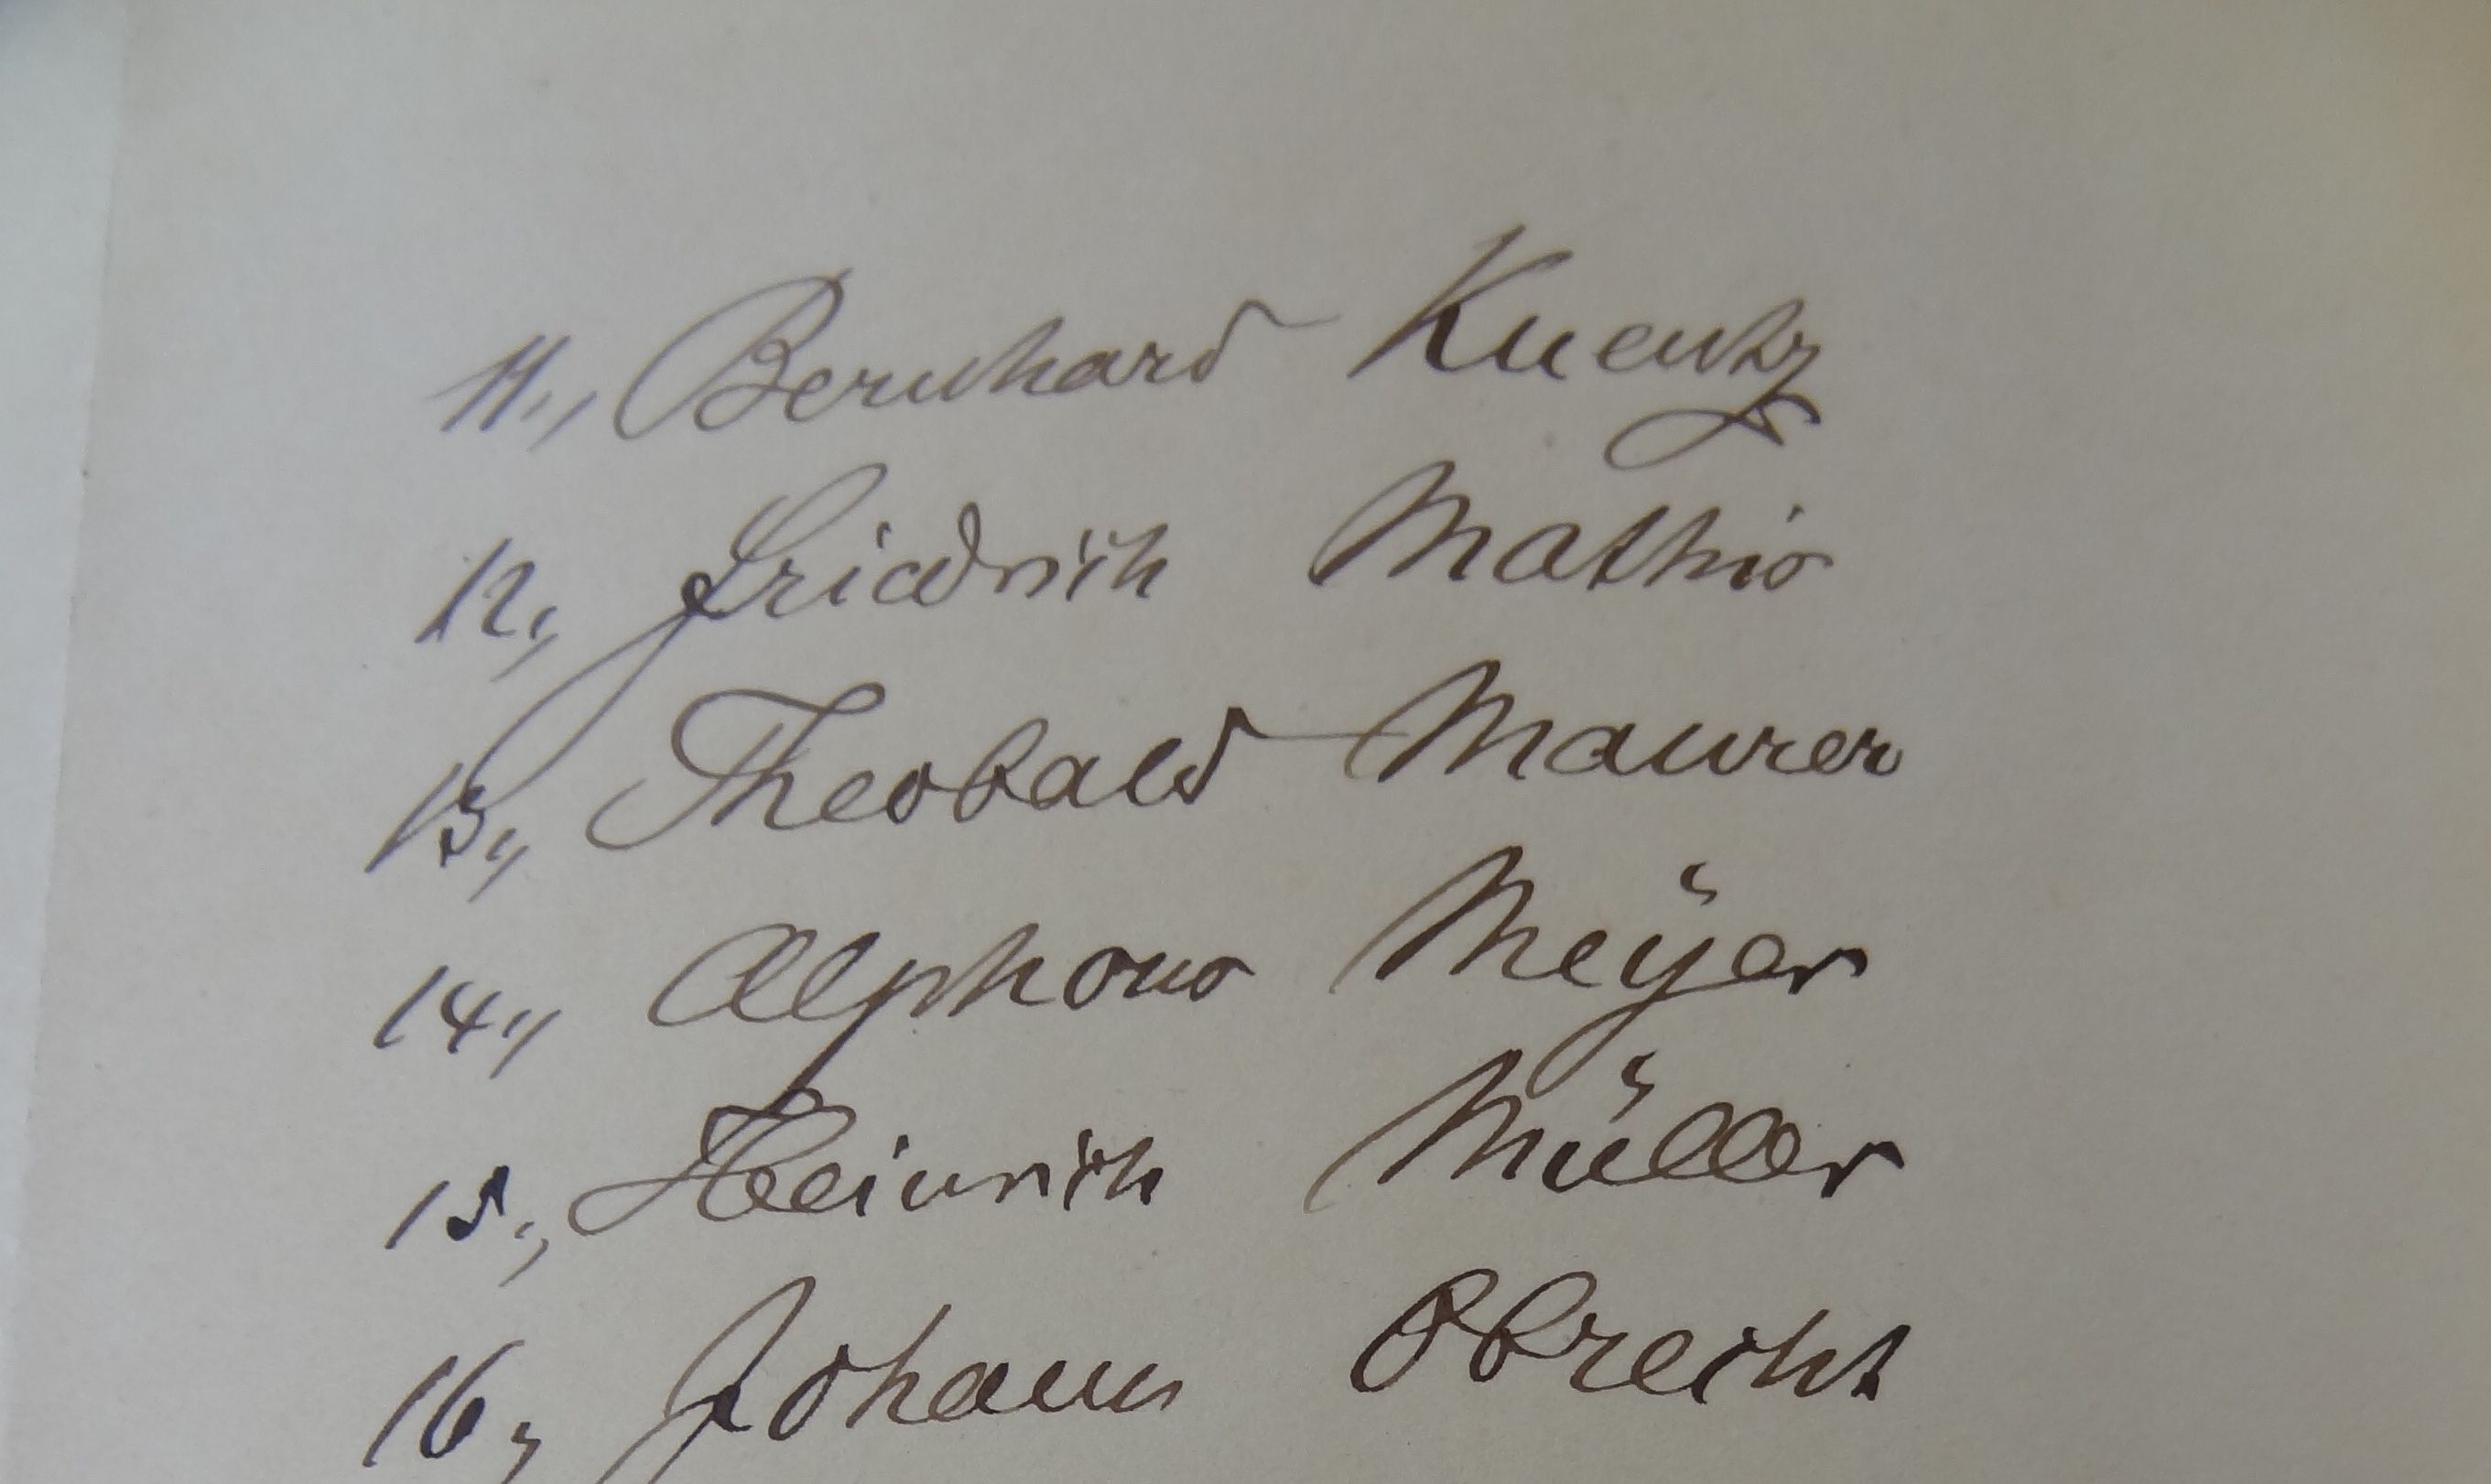 11., Bernhard Kuentz
12., Friedrich Mathis
13., Theobald Maurer
14., Alphons Meÿer
15., Heinrich Müller
16., Johann Obrecht